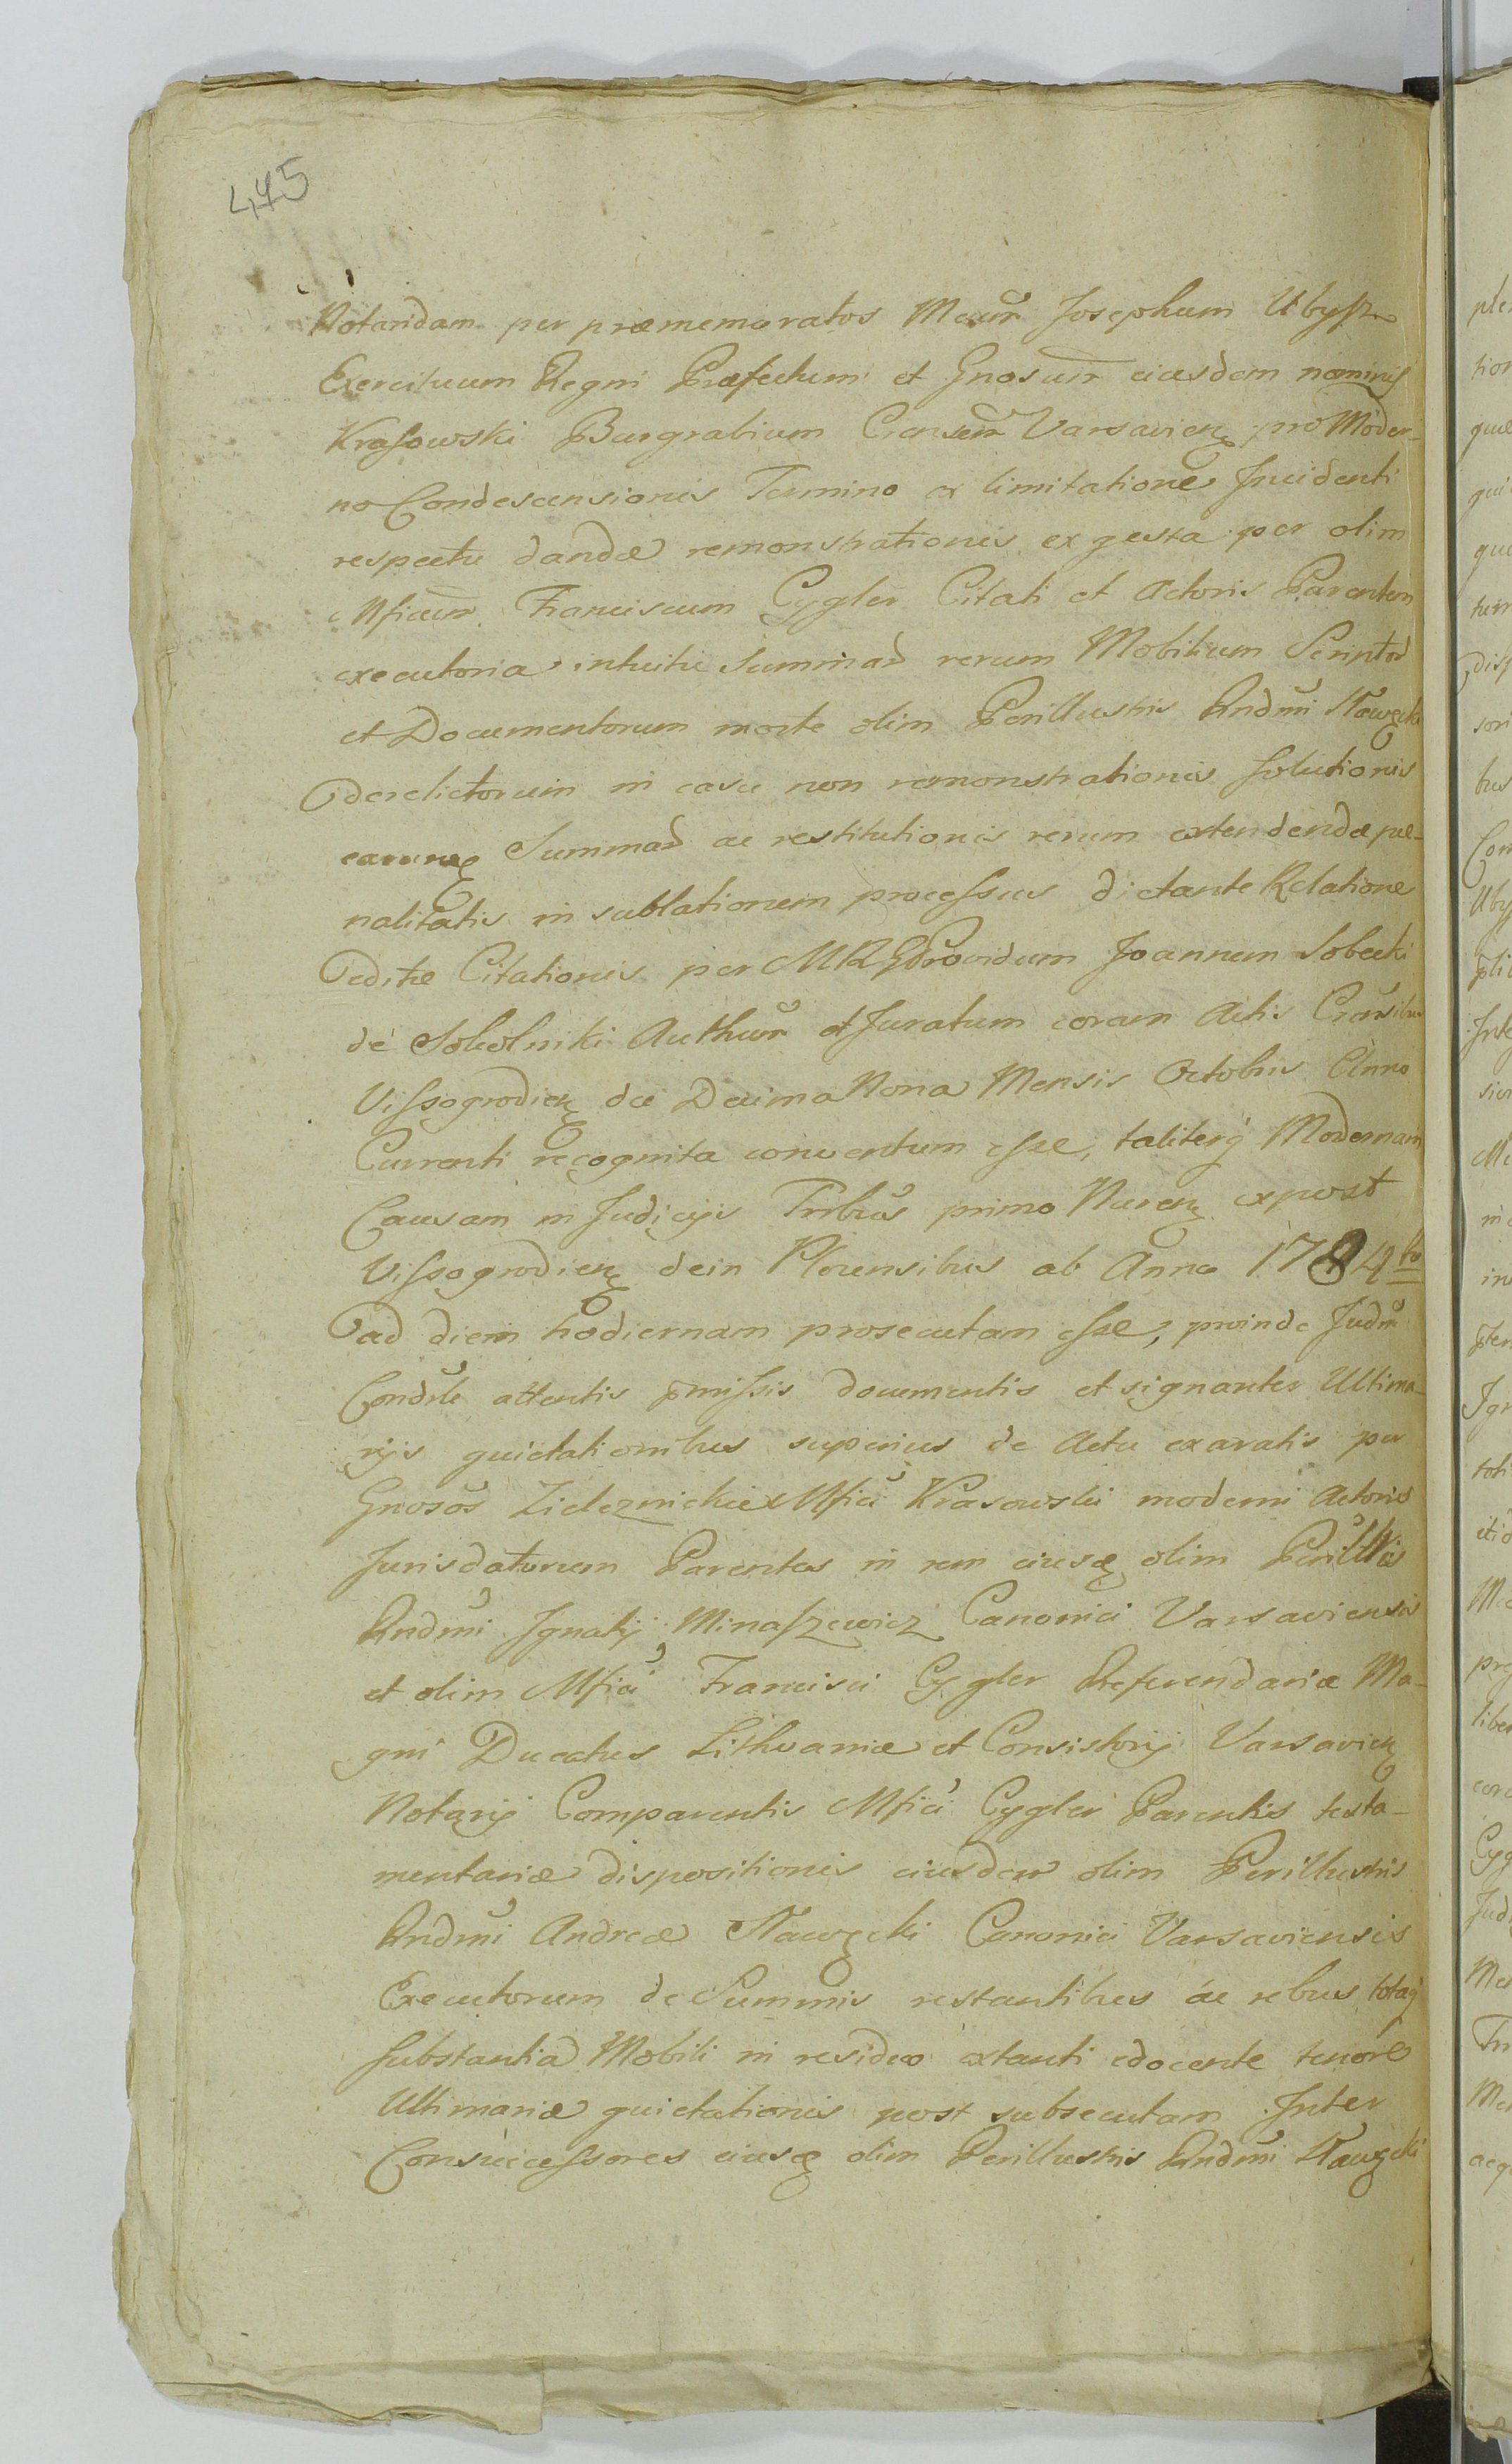 475
Notandam per præmemoratos Mcum Josephum Ubysz
Exercituum Regni Præfectum et Gnosum eiusdem nominis
Krasowski Burgrabium Crensem Varsavien pro Moder-
no Condescensionis Termino ex limitatione Incidenti
respectu dandæ remonstrationis ex gesta per olim
Mficum Franciscum Cygler Citati et Actoris Parentem
executoria intuitu Summar rerum Mobilium Script
et Documentorum morte olim Perillustris Rndmi Nawęcki
derelictorum in casu non remonstrationis solutionis
earumq Summar ac restitutionis rerum extendendæ pæ-
nalitatis in sublationem processus dictante Relatione
editæ Citationis per MRG Providum Joannem Sobecki
de Sokolniki Authum et Juratum coram Actis Crensibus
Vissogrodien die Decima Nona Mensis Octobris Anno
Currenti recognita conventum esse, taliterq Modernam
Causam in Judicijs Tribus primo Nuren expost
Vissogrodien dein Plocensibus ab Anno 1784to
ad diem hodiernam prosecutam esse, proinde Judm
Condle attentis pmissis documentis et signanter Ultima-
rijs quietationibus superius de Actu exaratis per
Gnosos Zieleznickie Mfici Krasowski moderni Actoris
Jurisdatorum Parentes in rem eiusq olim Perilltris
Rndmi Ignatij Minaszewicz Canonici Varsaviensis
et olim Mfici Francisci Cygler Referendariæ Ma-
gni Ducatus Lithvaniæ et Consistorij Varsavien
Notarij Comparentis Mfici Cygler Parentis testa-
mentariæ dispositionis eiusdem olim Perillustris
Rndmi Andreæ Nawęcki Canonici Varsaviensis
Executorum de Summis restantibus ac rebus totaq
substantia Mobili in residuo extanti edocente tenore
Ultimariæ quietationis post subsecutam Inter
Consuccessores eiusq olim Perillustris Rndmi Nawęcki